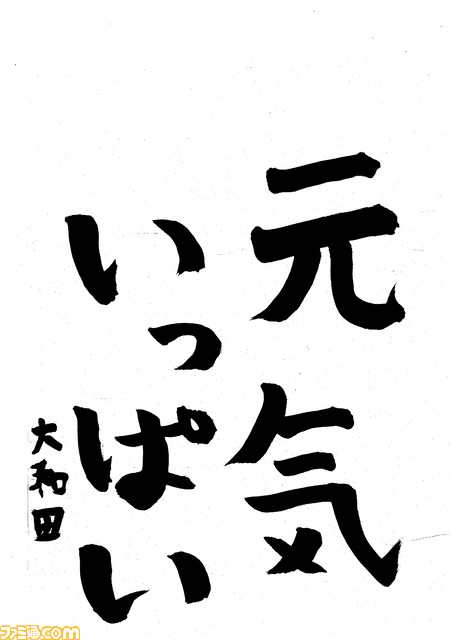 元気
いっぱい
大和田
ファミ通.com